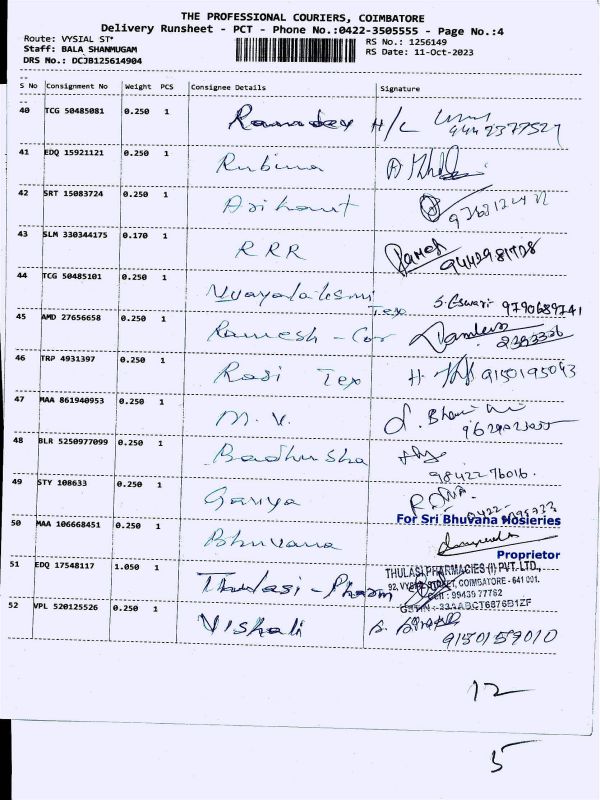 THE PROFESSIONAL COURIERS, COIMBATORE
Delivery Runsheet - PCT - Phone No.:0422-3505555 - Page No.:4
Route: VYSIAL ST*
RS No.: 1256149
Staff: BALA SHANMUGAM
RS Date: 11-Oct-2023
DRS No.: DCJB125614904
S No Consignment No Weight PCS Consignee Details Signature
40 TCG 50485081 0.250 1 H/C
41 EDQ 15921121 0.250 1 Rubina
42 SRT 15083724 0.250 1 Arihant
43 SLM 330344175 0.170 1 R R R Ramesh
44 TCG 50485101 0.250 1 Tex S. Eswari 9790689741
45 AMD 27656658 0.250 1 Ramesh - Cor
46 TRP 4931397 0.250 1 Rasi Tex H. 9150195043
47 MAA 861940953 0.250 1 M. V.
48 BLR 5250977099 0.250 1 Badhusha
98422 76016.
49 STY 108633 0.250 1
For Sri Bhuvana Hosieries
50 MAA 106668451 0.250 1 Bhuvana
Proprietor
51 EDQ 17548117 1.050 1 Thulasi - Pharm
THULASI PHARMACIES (I) PVT. LTD.,
COIMBATORE - 641 001.
Cell : 99439 77762
52 VPL 520125526 0.250 1 Vishali
9150159010
12
5